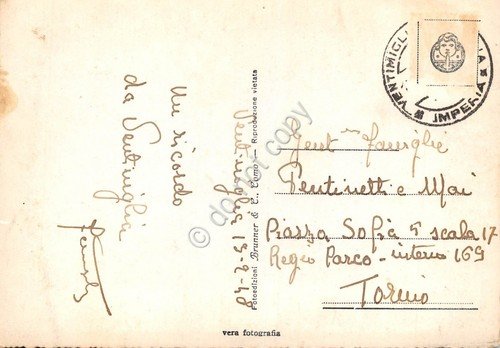 Un ricordo
da Ventimiglia
Ventimiglia 13-2-48
Fotoedizioni Brunner & C., Como — Riproduzione vietata
VENTIMIGLIA
IMPERIA
Gent. me Famiglie
Pentinetti e Mai
Piazza Sofia 5 scala 17
Regio Parco - interno 169
Torino
vera fotografia
do not copy